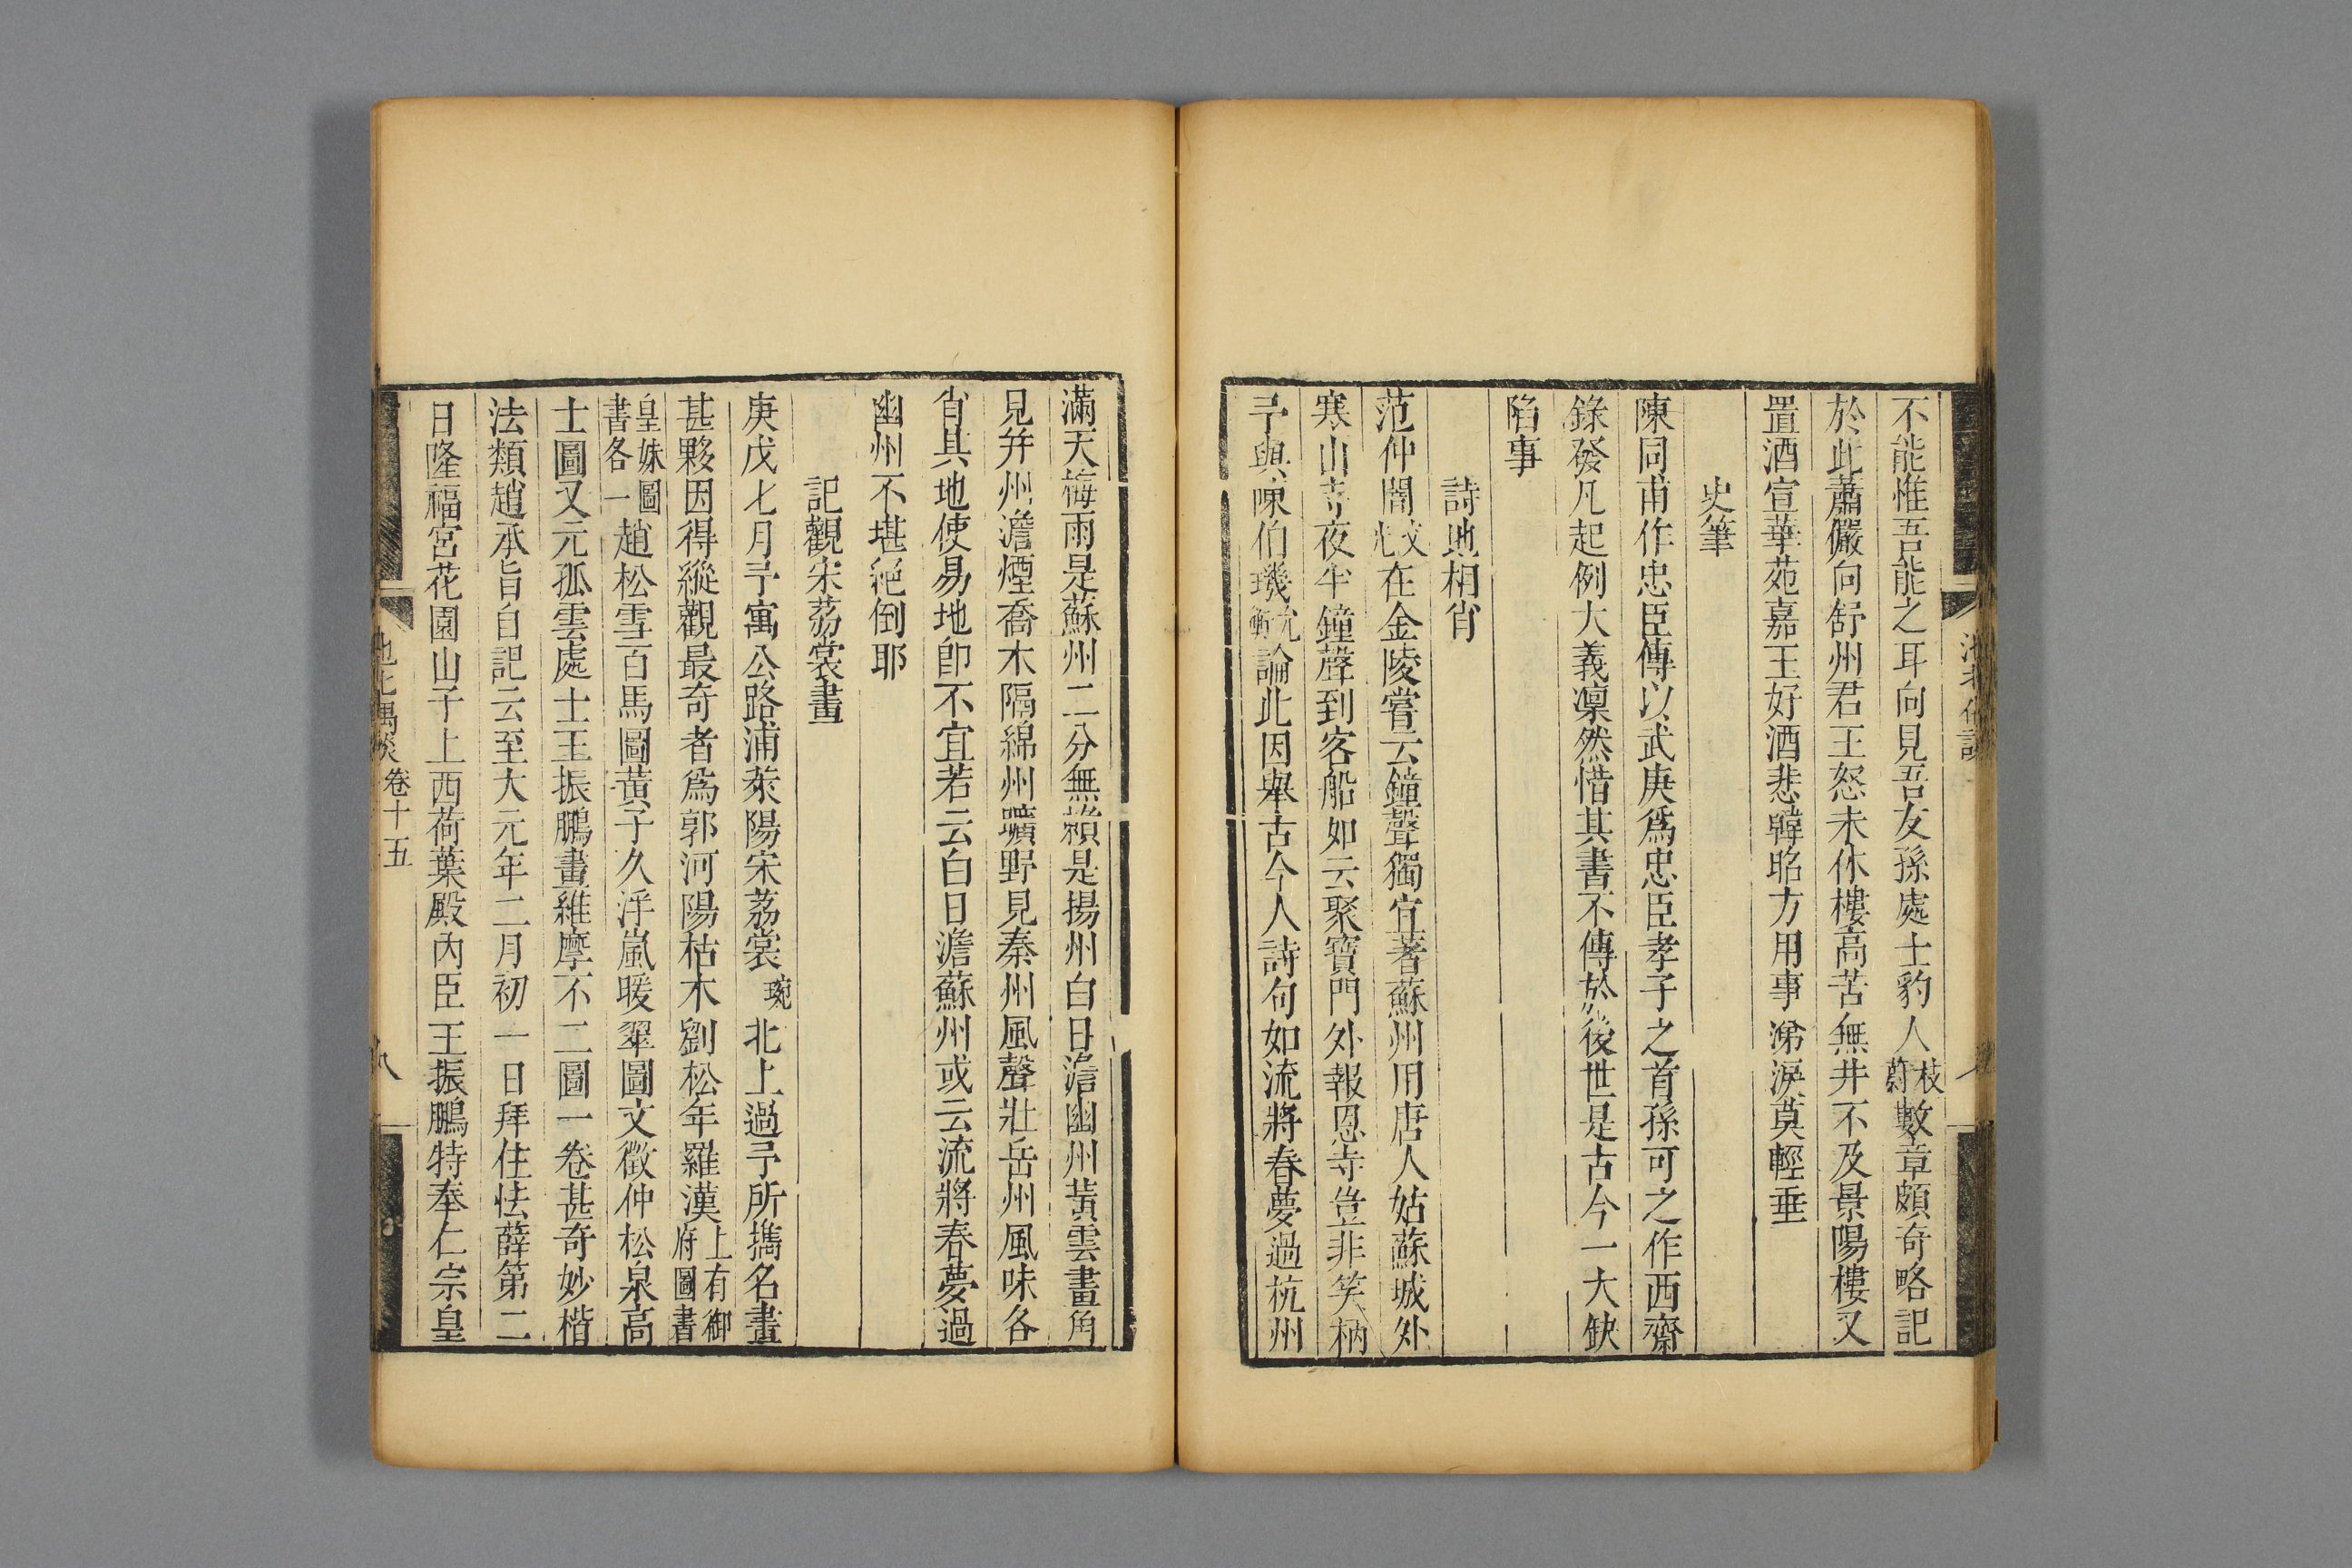 不能惟吾能之耳向見吾友孫處士豹人枝蔚數章頗奇略記
於此蕭儼向舒州君王怒未休樓高苦無井不及景陽樓又
置酒宣華苑嘉王好酒悲韓昭方用事涕淚莫輕垂
史筆
陳同甫作忠臣傳以武庚爲忠臣孝子之首孫可之作西齋
錄發凡起例大義凜然惜其書不傳於後世是古今一大缺
陷事
詩地相肖
范仲闇文光在金陵嘗云鐘聲獨宜著蘇州用唐人姑蘇城外
寒山寺夜半鐘聲到客船如云聚寶門外報恩寺豈非笑柄
予與陳伯璣允衡論此因舉古今人詩句如流將春夢過杭州
滿天梅雨是蘇州二分無賴是揚州白日澹幽州黃雲畫角
見幷州澹煙喬木隔綿州曠野見秦州風聲壯岳州風味各
肖其地使易地卽不宜若云白日澹蘇州或云流將春夢過
幽州不堪絕倒耶
記觀宋荔裳畫
庚戌七月予寓公路浦萊陽宋荔裳琬北上過予所攜名畫
甚夥因得縱觀最奇者爲郭河陽枯木劉松年羅漢上有御府圖書
皇妹圖書各一趙松雪百馬圖黃子久浮嵐暖翠圖文徵仲松泉高
士圖又元孤雲處士王振鵬畫維摩不二圖一卷甚奇妙楷
法類趙承旨自記云至大元年二月初一日拜住怯薛第二
日隆福宮花園山子上西荷葉殿內臣王振鵬特奉仁宗皇
池北偶談 卷十五 八